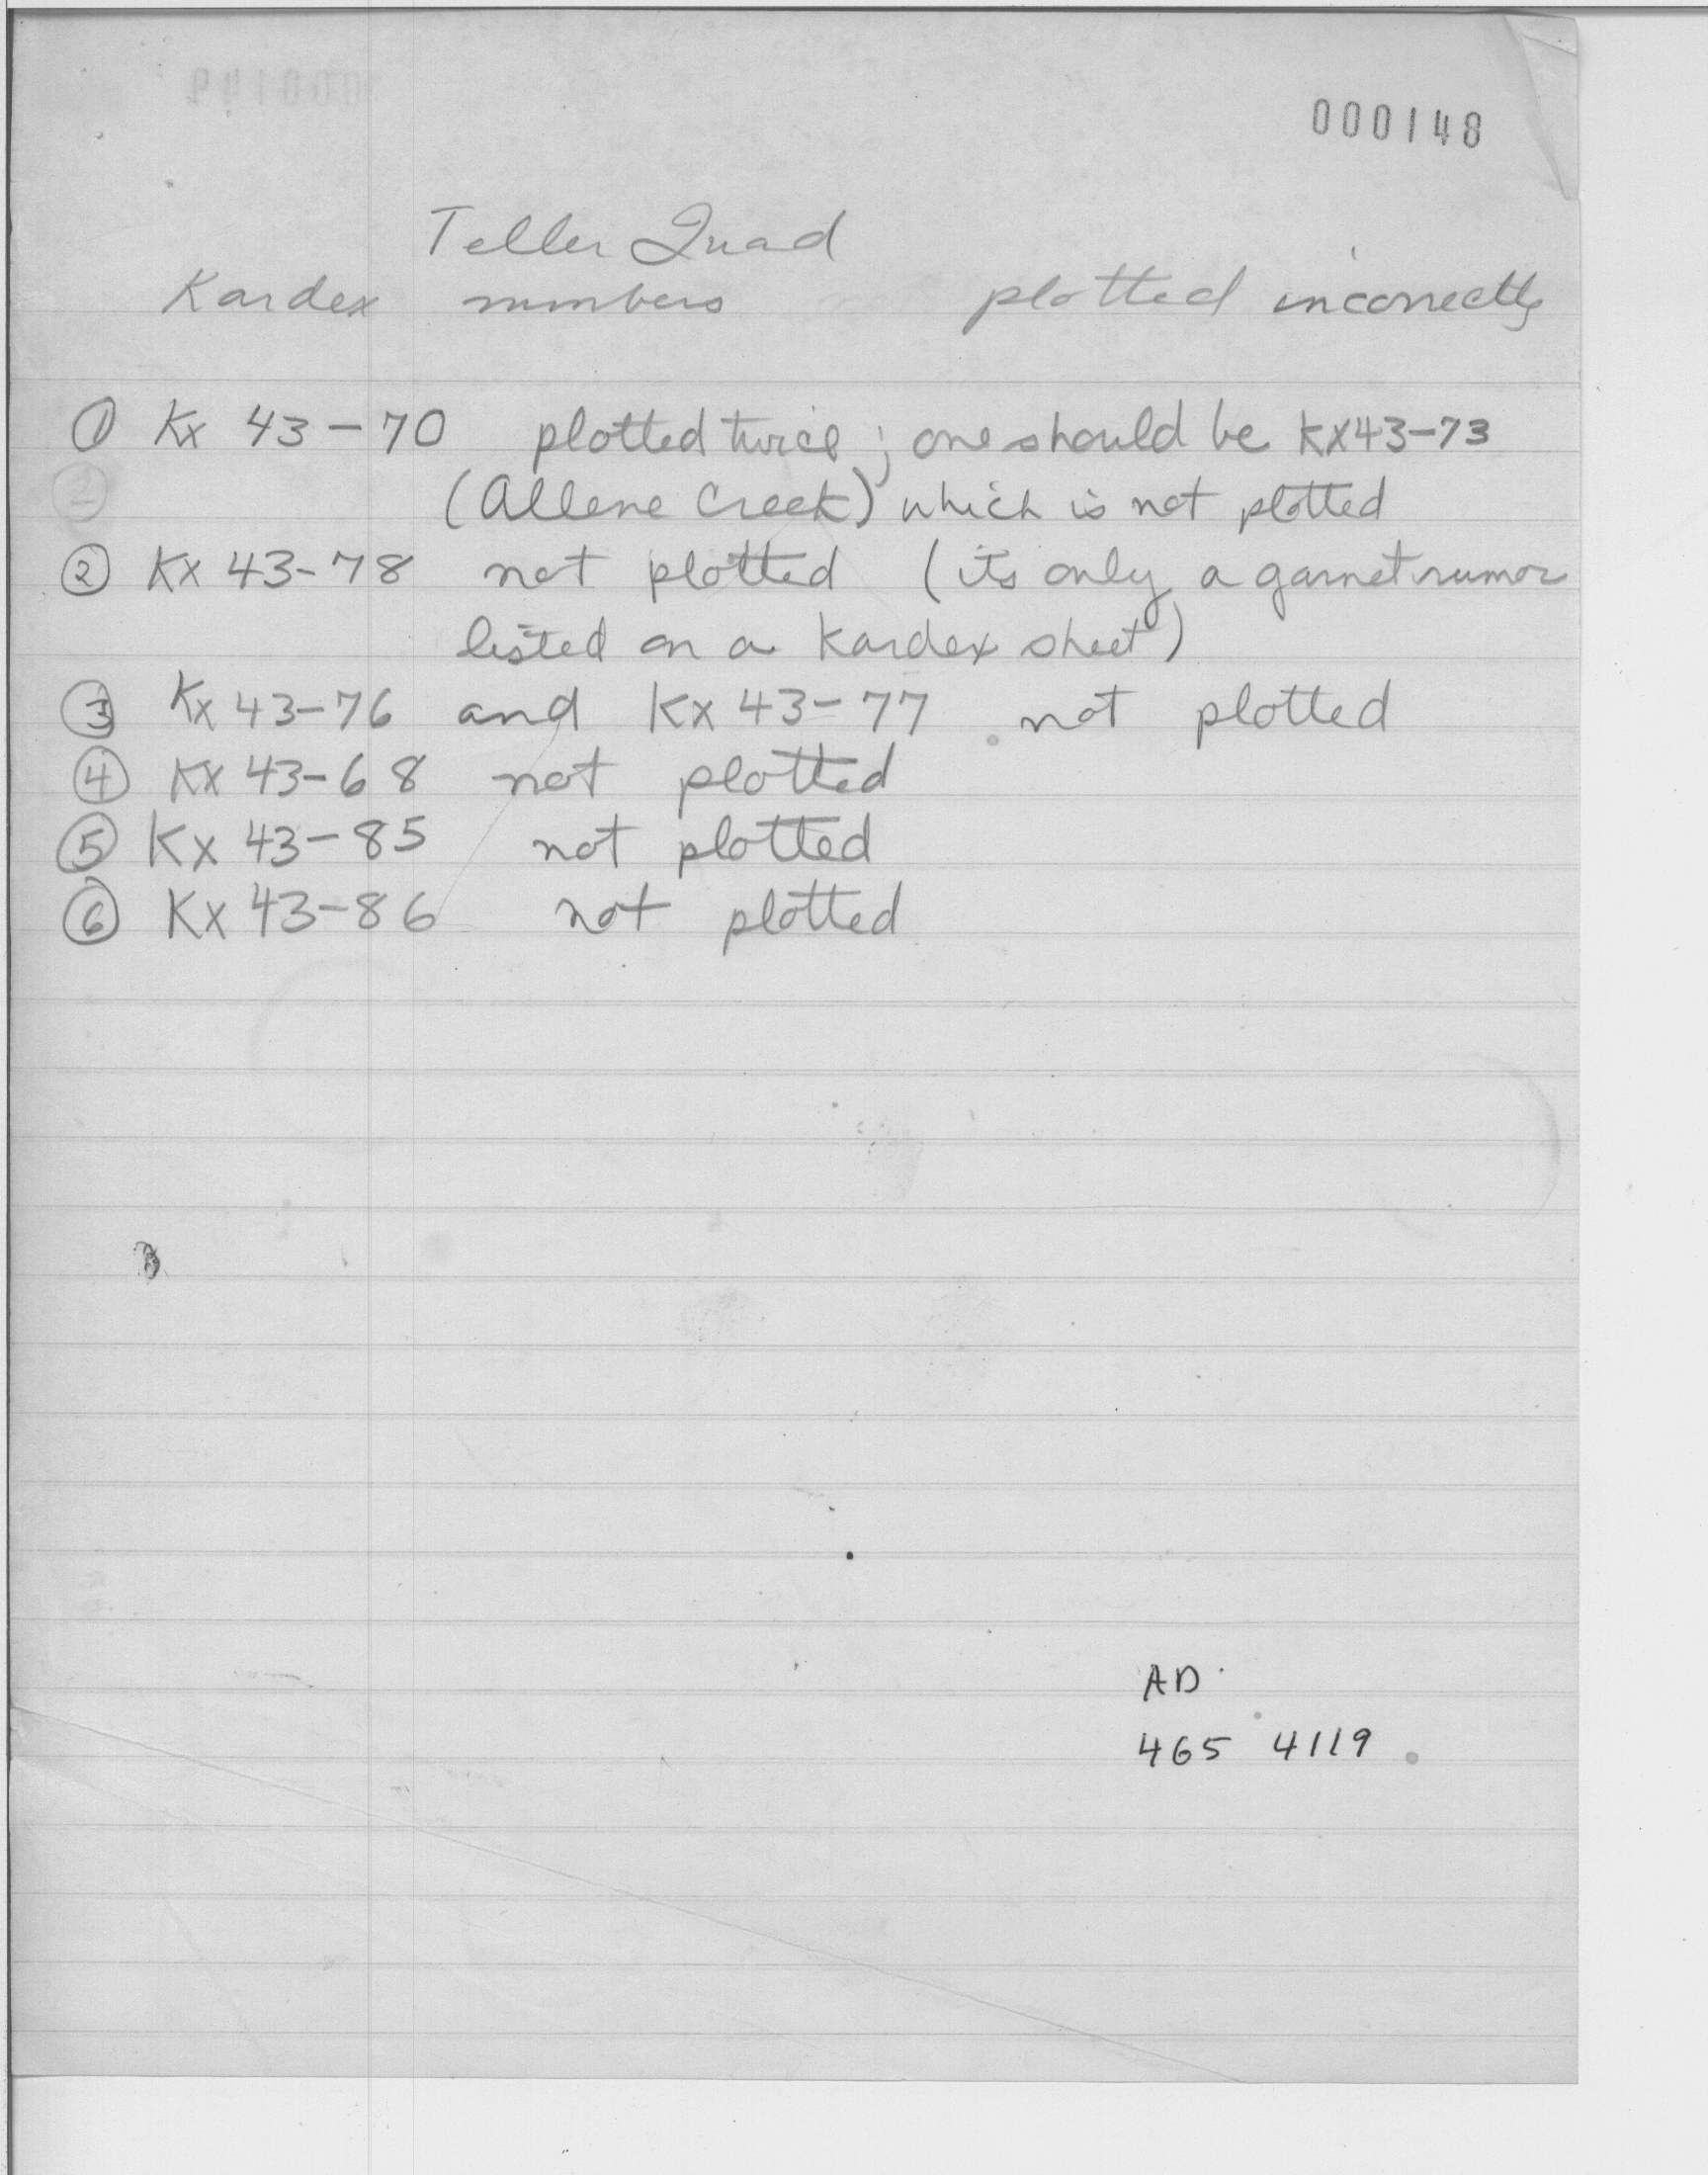 000148
Teller Quad
Kardex numbers plotted incorrectly
① Kx 43-70 plotted twice; one should be KX43-73
(Allene Creek) which is not plotted
② KX 43-78 not plotted (its only a garnet rumor
listed on a Kardex sheet)
③ Kx 43-76 and Kx 43-77 not plotted
④ KX 43-68 not plotted
⑤ KX 43-85 not plotted
⑥ KX 43-86 not plotted
AD
465 4119